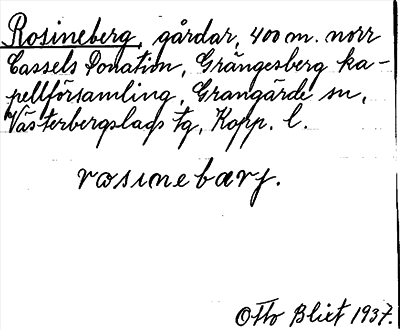 Rosineberg, gårdar, 400 m. norr
Cassels Donation, Grängesberg ka-
pellförsamling, Grangärde sn,
Västerbergslags tg, Kopp. l.
rosinebærj.
Otto Blixt 1937.